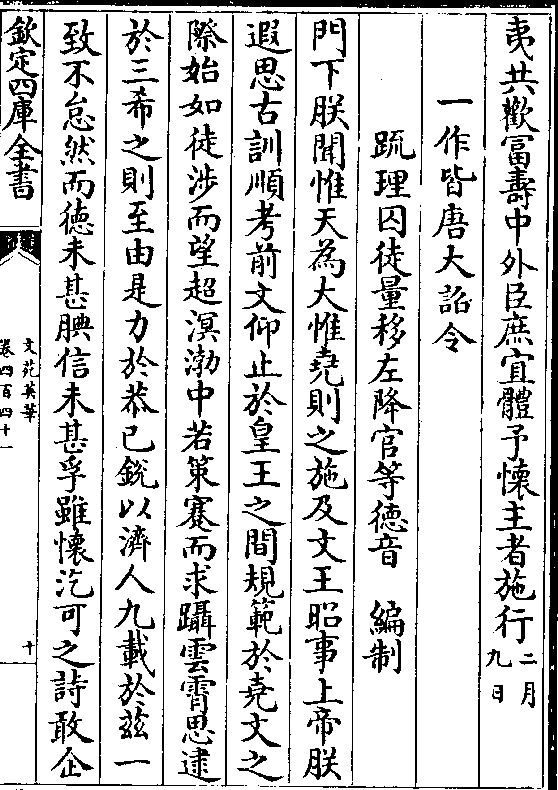 夷共歡富壽中外臣庶宜體予懷主者施行二月九日
一作皆唐大詔令
疏理囚徒量移左降官等徳音　編制
門下朕聞惟天為大惟堯則之施及文王昭事上帝朕
遐思古訓順考前文仰止於皇王之間規範於堯文之
際始如徒涉而望超溟渤中若策蹇而求躡雲霄思逮
於三希之則至由是力於恭已鋭以濟人九載於兹一
致不怠然而徳未甚腆信未甚孚雖懷汔可之詩敢企
欽定四庫全書
文苑英華
卷四百四十一
十